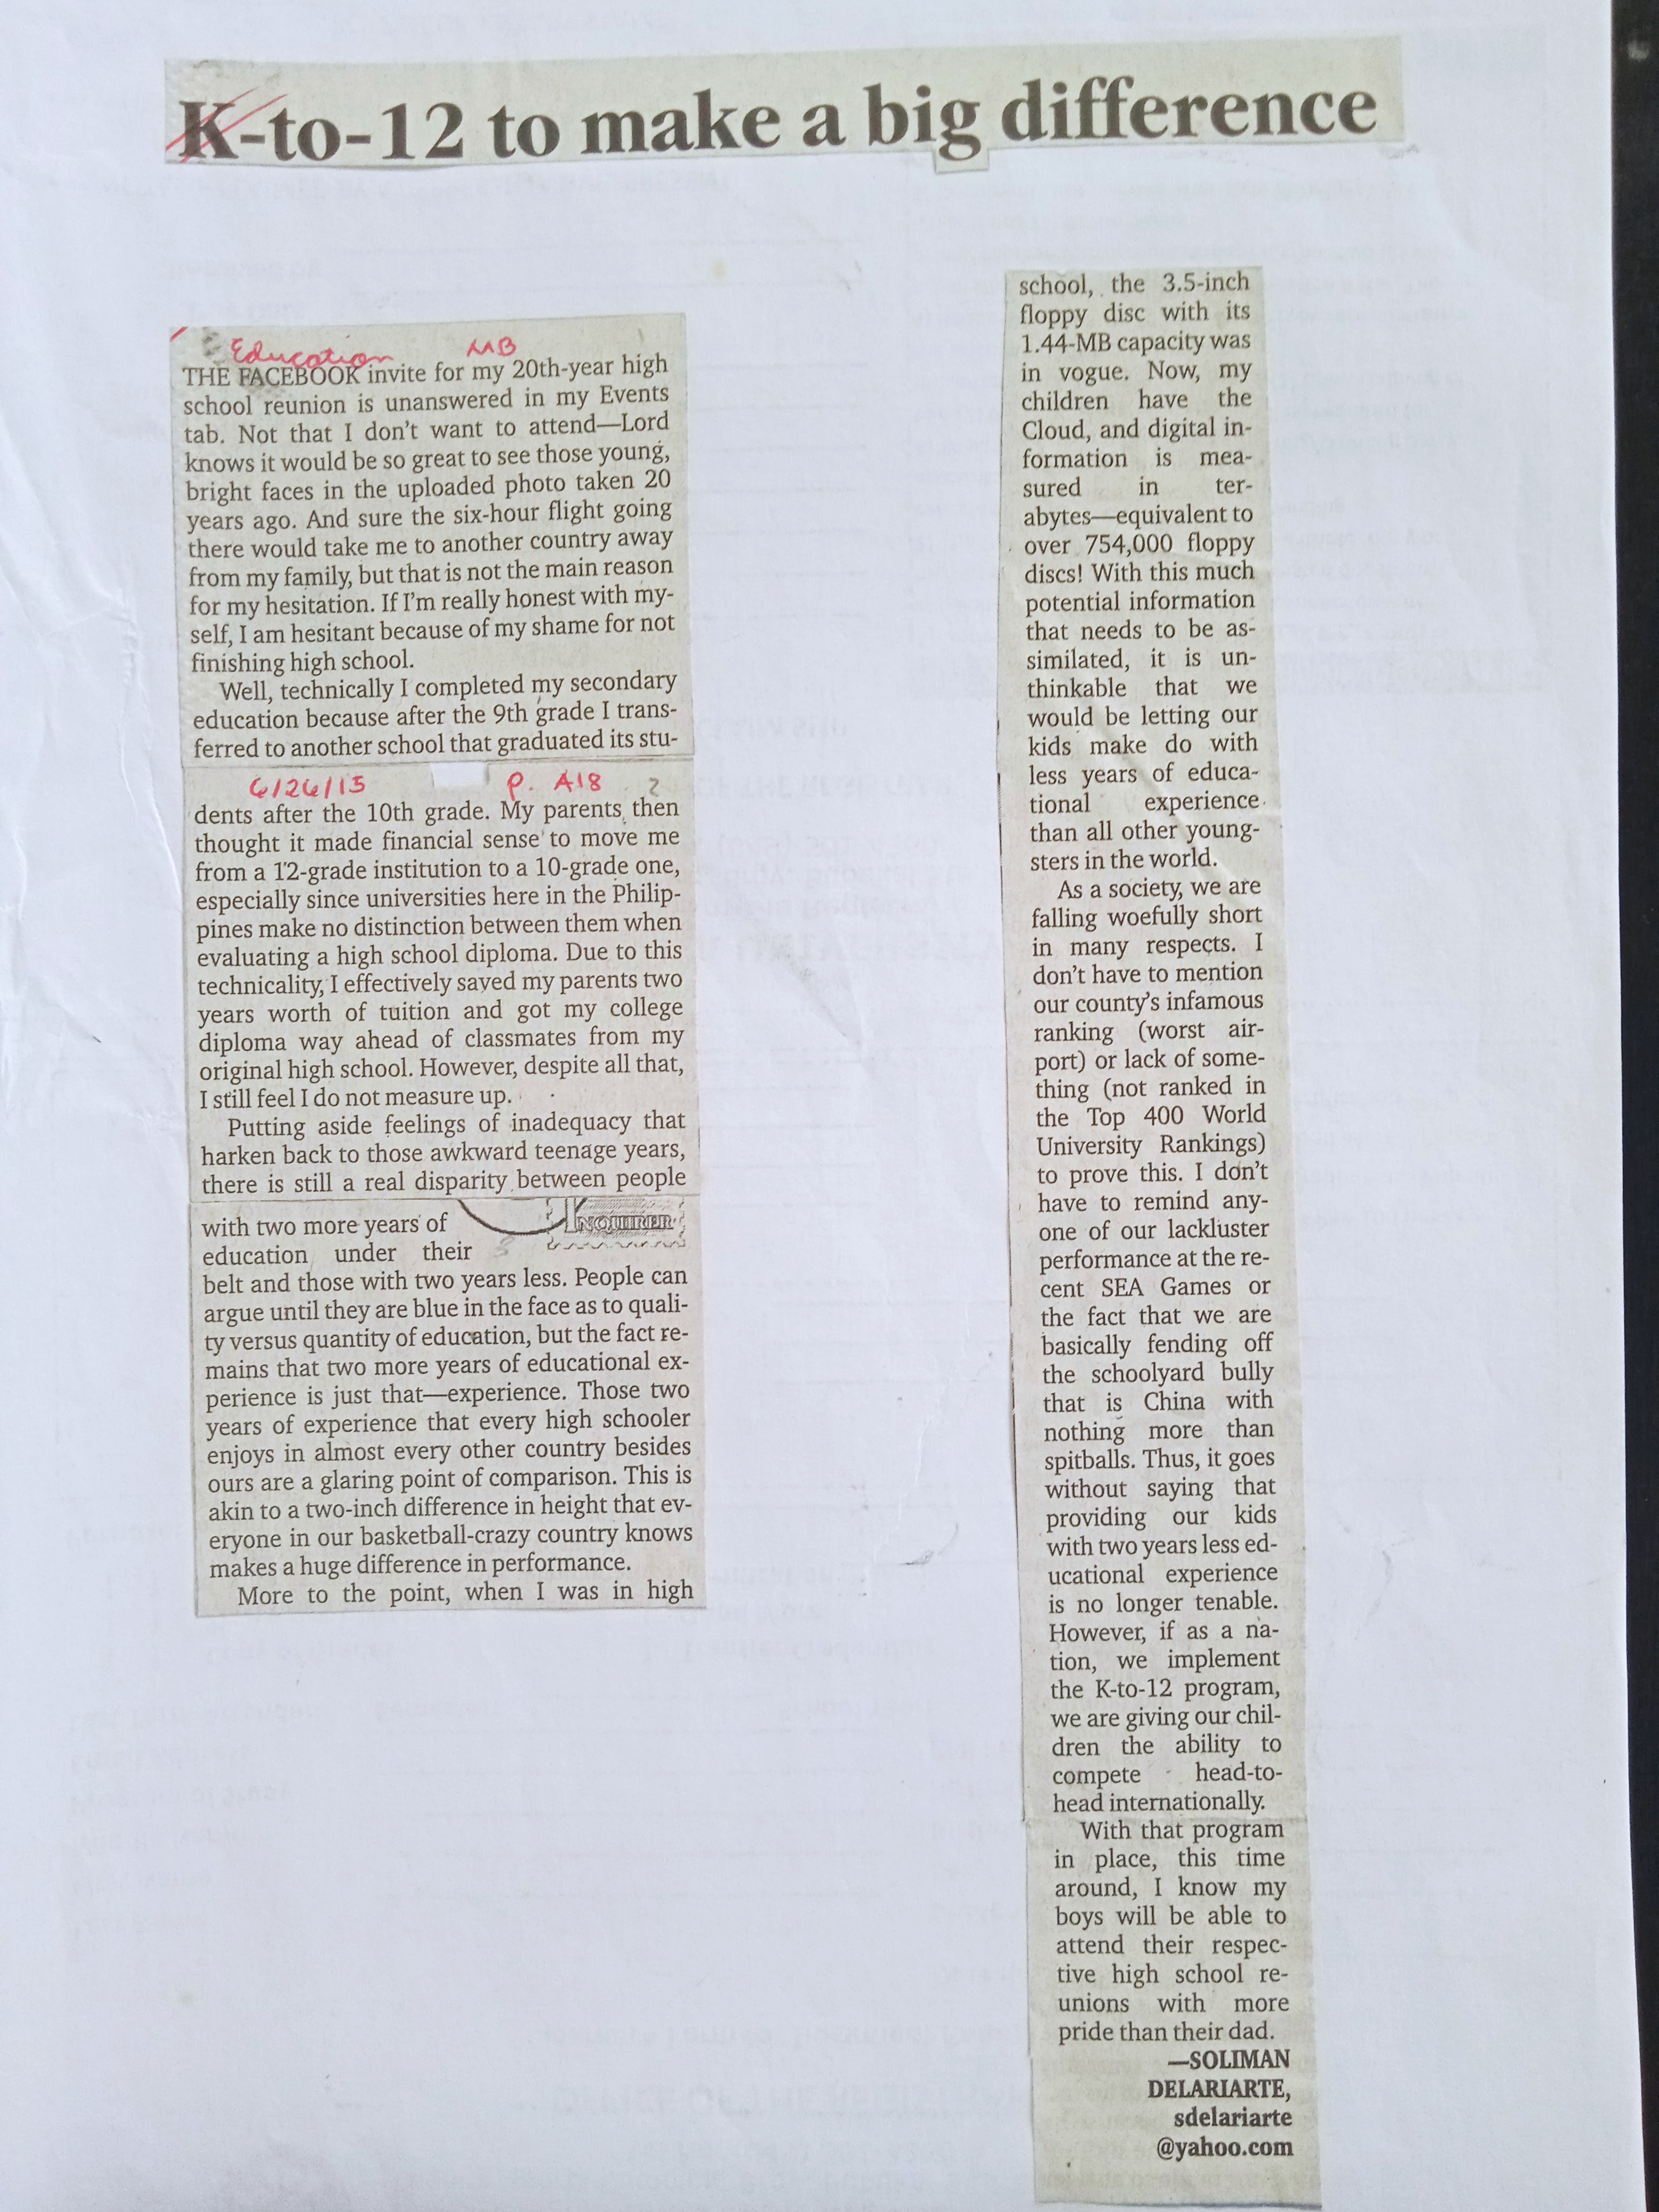 K-to-12 to make a big difference
Education MB
THE FACEBOOK invite for my 20th-year high
school reunion is unanswered in my Events
tab. Not that I don't want to attend—Lord
knows it would be so great to see those young,
bright faces in the uploaded photo taken 20
years ago. And sure the six-hour flight going
there would take me to another country away
from my family, but that is not the main reason
for my hesitation. If I'm really honest with my-
self, I am hesitant because of my shame for not
finishing high school.
Well, technically I completed my secondary
education because after the 9th grade I trans-
ferred to another school that graduated its stu-
6/26/15 p. A18 2
dents after the 10th grade. My parents then
thought it made financial sense to move me
from a 12-grade institution to a 10-grade one,
especially since universities here in the Philip-
pines make no distinction between them when
evaluating a high school diploma. Due to this
technicality, I effectively saved my parents two
years worth of tuition and got my college
diploma way ahead of classmates from my
original high school. However, despite all that,
I still feel I do not measure up.
Putting aside feelings of inadequacy that
harken back to those awkward teenage years,
there is still a real disparity between people
INQUIRER
with two more years of
education under their 3
belt and those with two years less. People can
argue until they are blue in the face as to quali-
ty versus quantity of education, but the fact re-
mains that two more years of educational ex-
perience is just that—experience. Those two
years of experience that every high schooler
enjoys in almost every other country besides
ours are a glaring point of comparison. This is
akin to a two-inch difference in height that ev-
eryone in our basketball-crazy country knows
makes a huge difference in performance.
More to the point, when I was in high
school, the 3.5-inch
floppy disc with its
1.44-MB capacity was
in vogue. Now, my
children have the
Cloud, and digital in-
formation is mea-
sured in ter-
abytes—equivalent to
over 754,000 floppy
discs! With this much
potential information
that needs to be as-
similated, it is un-
thinkable that we
would be letting our
kids make do with
less years of educa-
tional experience
than all other young-
sters in the world.
As a society, we are
falling woefully short
in many respects. I
don't have to mention
our county's infamous
ranking (worst air-
port) or lack of some-
thing (not ranked in
the Top 400 World
University Rankings)
to prove this. I don't
have to remind any-
one of our lackluster
performance at the re-
cent SEA Games or
the fact that we are
basically fending off
the schoolyard bully
that is China with
nothing more than
spitballs. Thus, it goes
without saying that
providing our kids
with two years less ed-
ucational experience
is no longer tenable.
However, if as a na-
tion, we implement
the K-to-12 program,
we are giving our chil-
dren the ability to
compete head-to-
head internationally.
With that program
in place, this time
around, I know my
boys will be able to
attend their respec-
tive high school re-
unions with more
pride than their dad.
—SOLIMAN
DELARIARTE,
sdelariarte
@yahoo.com